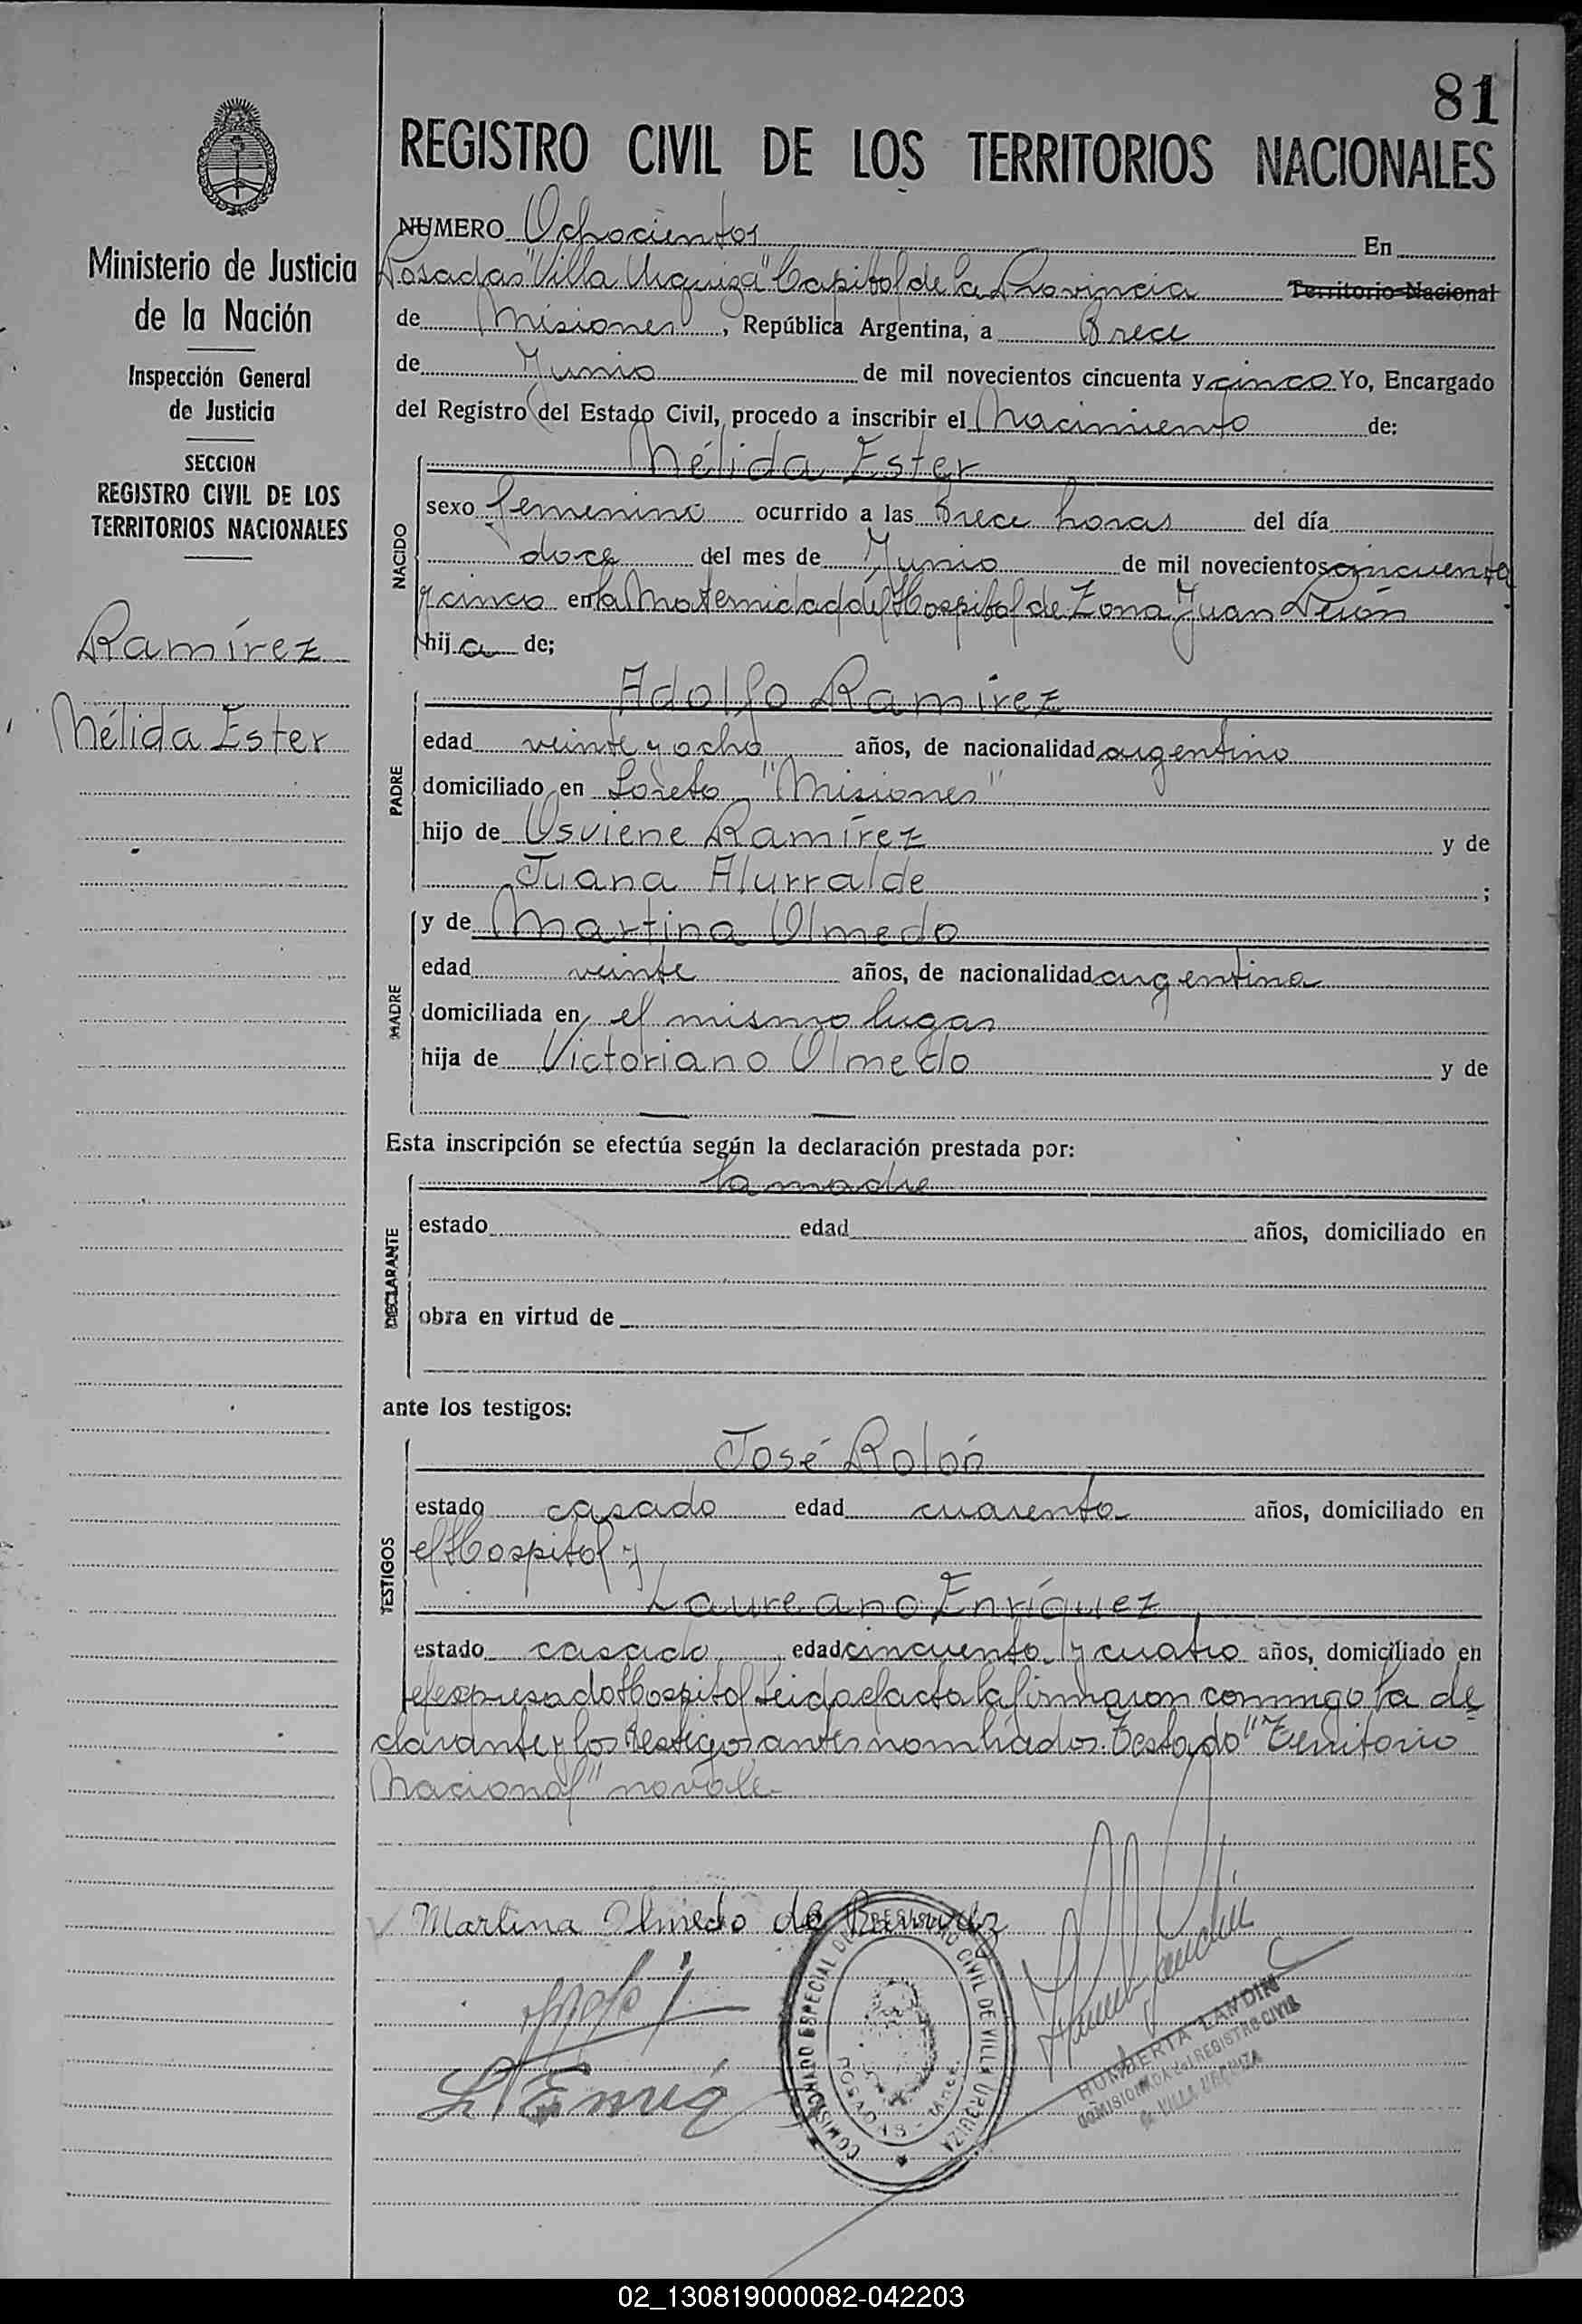 81
REGISTRO CIVIL DE LOS TERRITORIOS NACIONALES
Ministerio de Justicia
de la Nación
Inspección General
de Justicia
SECCION
REGISTRO CIVIL DE LOS
TERRITORIOS NACIONALES
Ramírez
Nélida Ester
NUMERO Ochocientos En
Posadas "Villa Urquiza" Capital de la Provincia Territorio Nacional
de Misiones, República Argentina, a Trece
de Junio de mil novecientos cincuenta y cinco Yo, Encargado
del Registro del Estado Civil, procedo a inscribir el Nacimiento de:
Nélida Ester
NACIDO
sexo femenino ocurrido a las Trece horas del día
doce del mes de Junio de mil novecientos cincuenta
y cinco en la Maternidad del Hospital de Zona Juan Perón
hija de;
Adolfo Ramírez
PADRE
edad veinte y ocho años, de nacionalidad argentino
domiciliado en Loreto "Misiones"
hijo de Osviene Ramírez y de
Juana Alurralde ;
y de Martina Olmedo
MADRE
edad veinte años, de nacionalidad argentina
domiciliada en el mismo lugar
hija de Victoriano Olmedo y de
Esta inscripción se efectúa según la declaración prestada por:
la madre
DECLARANTE
estado edad años, domiciliado en
obra en virtud de
ante los testigos:
José Rolón
TESTIGOS
estado casado edad cuarenta años, domiciliado en
el Hospital y
Laureano Enríquez
estado casado edad cincuenta y cuatro años, domiciliado en
el expresado Hospital Leida el acta la firmaron conmigo la de
clarante y los testigos antes nombrados. Testado "Territorio
Nacional" no vale
Martina Olmedo de Ramirez
COMISIONADO ESPECIAL DEL REGISTRO CIVIL DE VILLA URQUIZA
POSADAS - Mnes.
HUMBERTA LANDIN
COMISIONADA del REGISTRO CIVIL
de VILLA URQUIZA
02_130819000082-042203